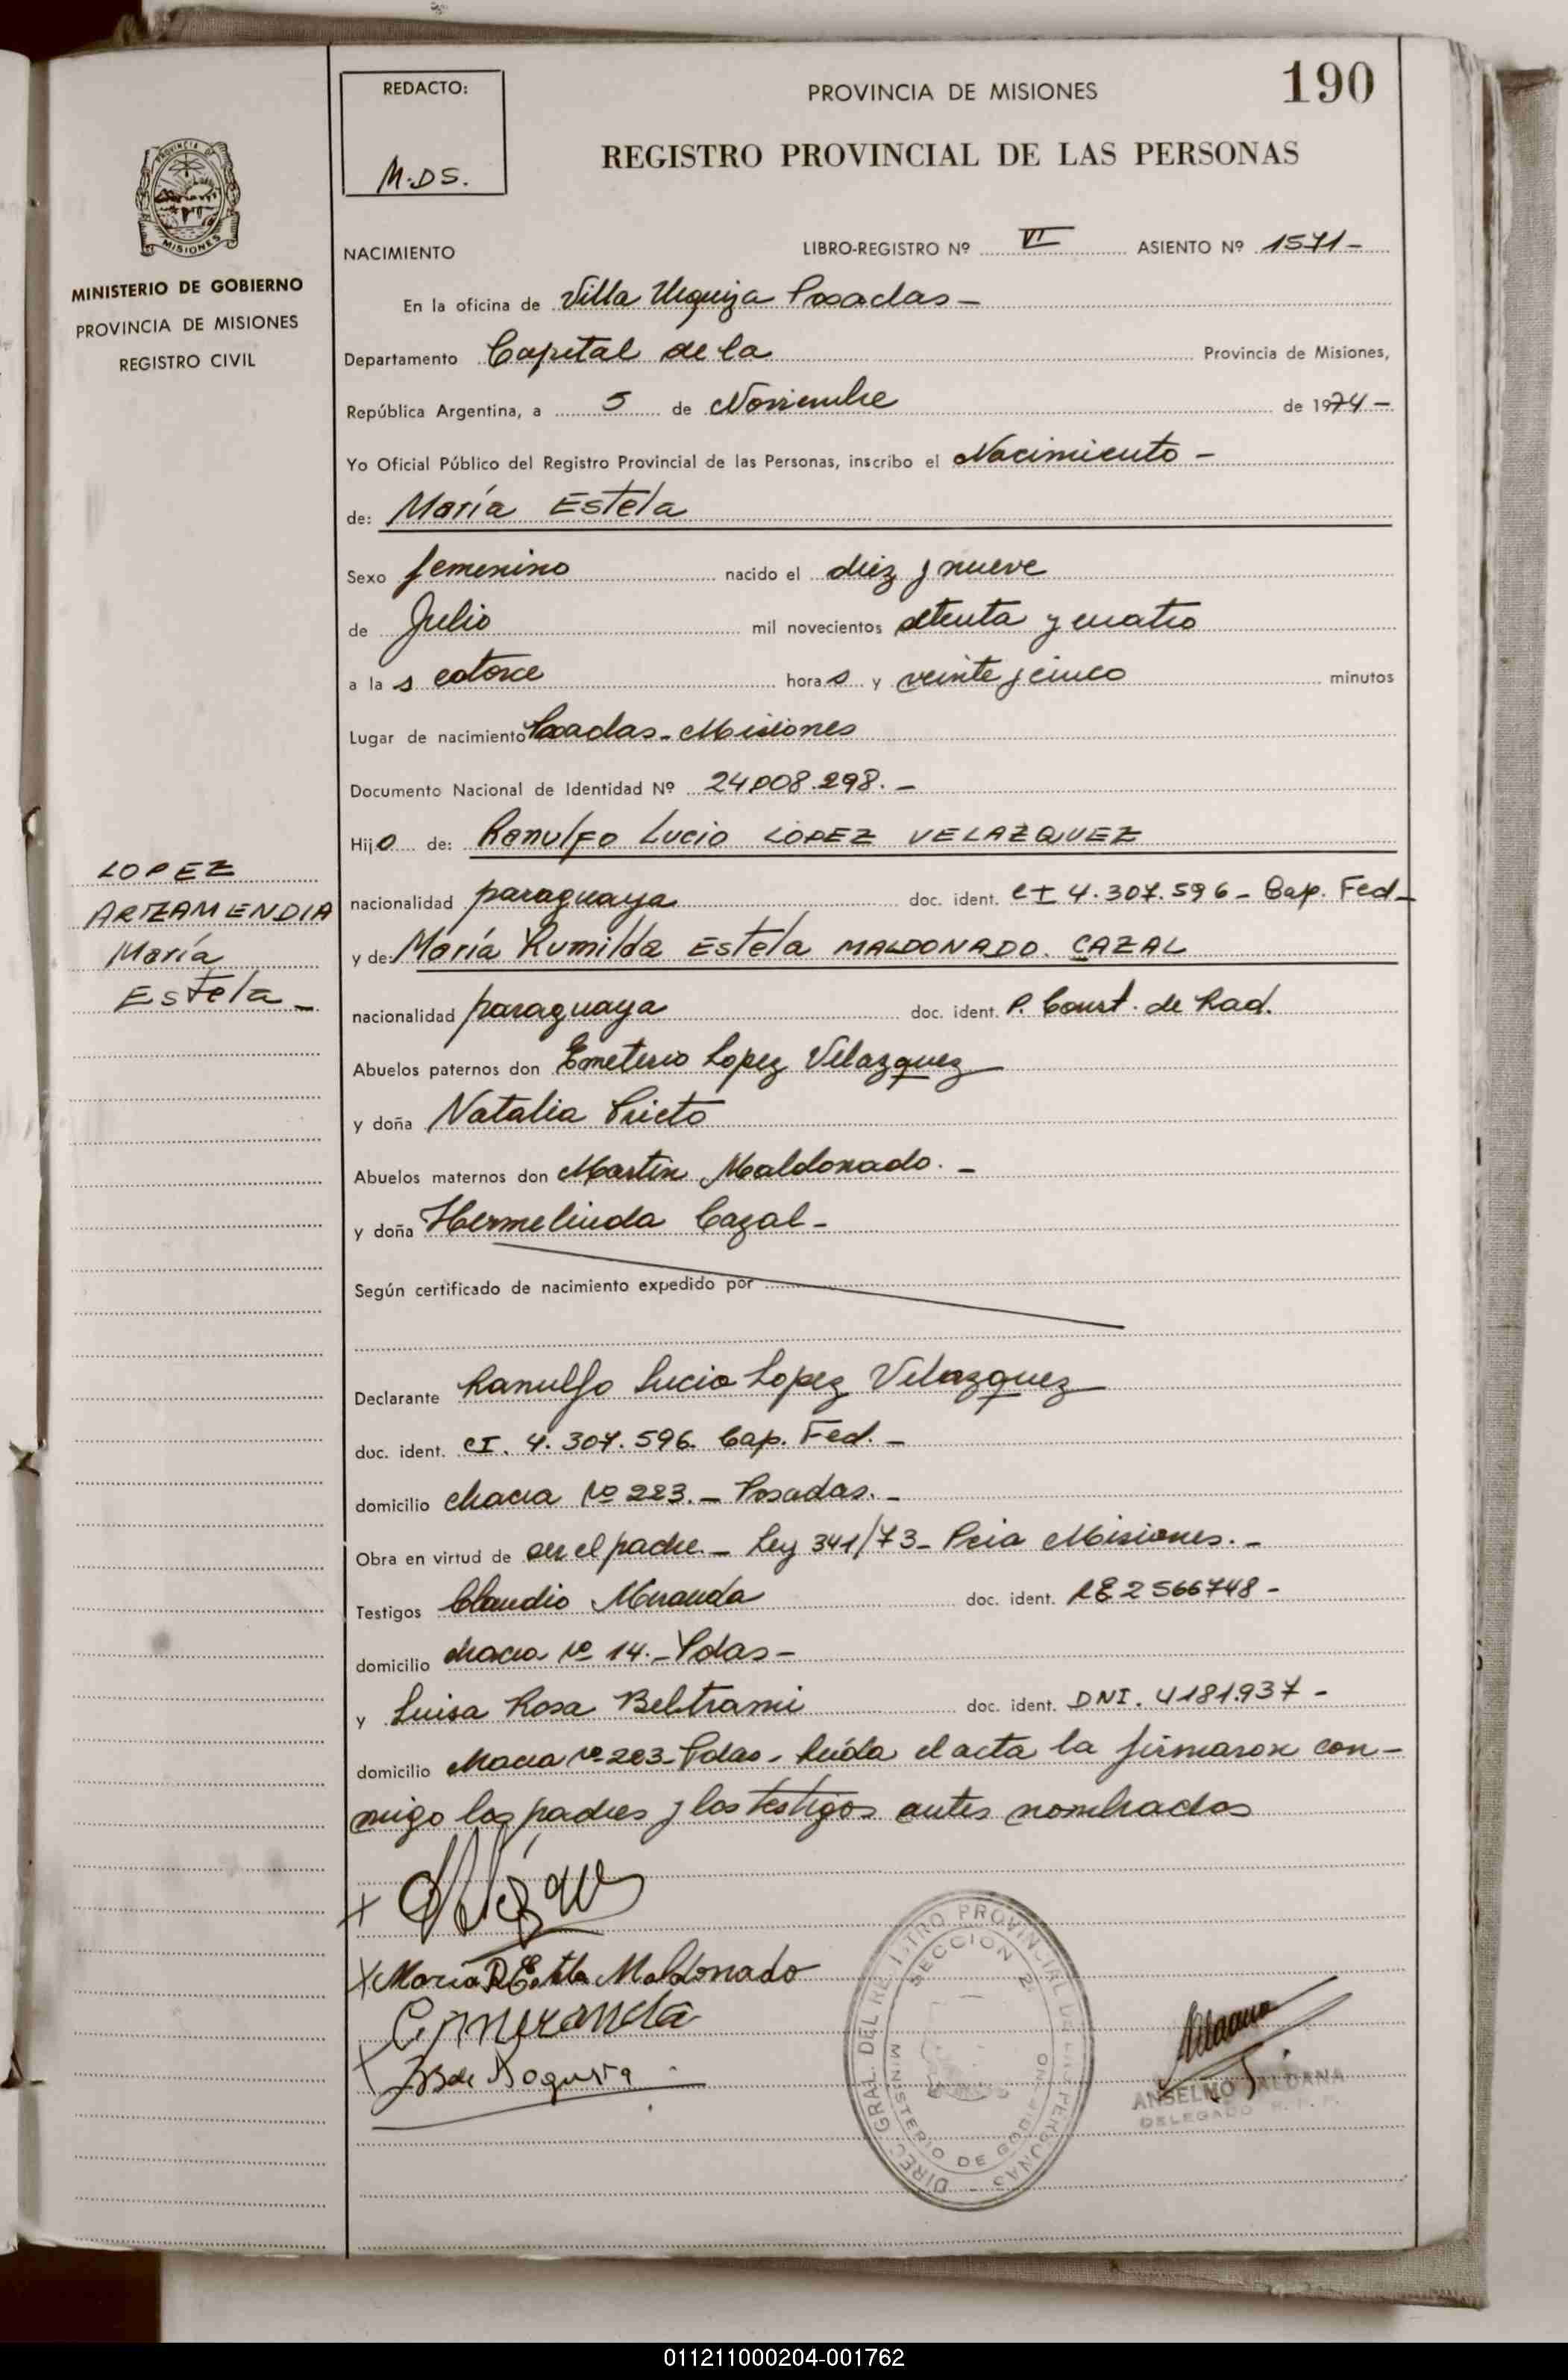 190
REDACTO:
M.DS.
PROVINCIA DE MISIONES
REGISTRO PROVINCIAL DE LAS PERSONAS
PROVINCIA DE MISIONES
MINISTERIO DE GOBIERNO
PROVINCIA DE MISIONES
REGISTRO CIVIL
NACIMIENTO LIBRO-REGISTRO Nº VI ASIENTO Nº 1571-
En la oficina de Villa Urquiza Posadas-
Departamento Capital de la Provincia de Misiones,
República Argentina, a 5 de Noviembre de 1974-
Yo Oficial Público del Registro Provincial de las Personas, inscribo el Nacimiento-
de: María Estela
Sexo femenino nacido el diez y nueve
de Julio mil novecientos setenta y cuatro
a la s catorce hora s y veinte y cinco minutos
Lugar de nacimiento Posadas-Misiones
Documento Nacional de Identidad Nº 24.008.298.-
Hijo de: Ranulfo Lucio LOPEZ VELAZQUEZ
LOPEZ
ARIZAMENDIA
María
Estela-
nacionalidad paraguaya doc. ident. CI 4.307.596- Cap. Fed-
y de: María Rumilda Estela MALDONADO. CAZAL
nacionalidad paraguaya doc. ident. P. Const. de Rad.
Abuelos paternos don Emeterio Lopez Velazquez
y doña Natalia Prieto
Abuelos maternos don Martin Maldonado.-
y doña Hermelinda Cazal-
Según certificado de nacimiento expedido por
Declarante Ranulfo Lucio Lopez Velazquez
doc. ident. CI. 4.307.596. Cap. Fed.-
domicilio chacra Nº 223.- Posadas.-
Obra en virtud de ser el padre.- Ley 341/73- Pcia Misiones.-
Testigos Claudio Miranda doc. ident. LE 2566748-
domicilio chacra Nº 14.- Pdas-
y Luisa Rosa Beltrami doc. ident. DNI. 4181.937-
domicilio chacra Nº 223-Pdas- leída el acta la firmaron con-
migo los padres y los testigos antes nombrados
x Maria R Estela Maldonado
C. Miranda
DIREC. GRAL. DEL REGISTRO PROVINCIAL DE LAS PERSONAS
SECCION 2ª
MINISTERIO DE GOBIERNO
ANSELMO ALDANA
DELEGADO R. P. P.
011211000204-001762